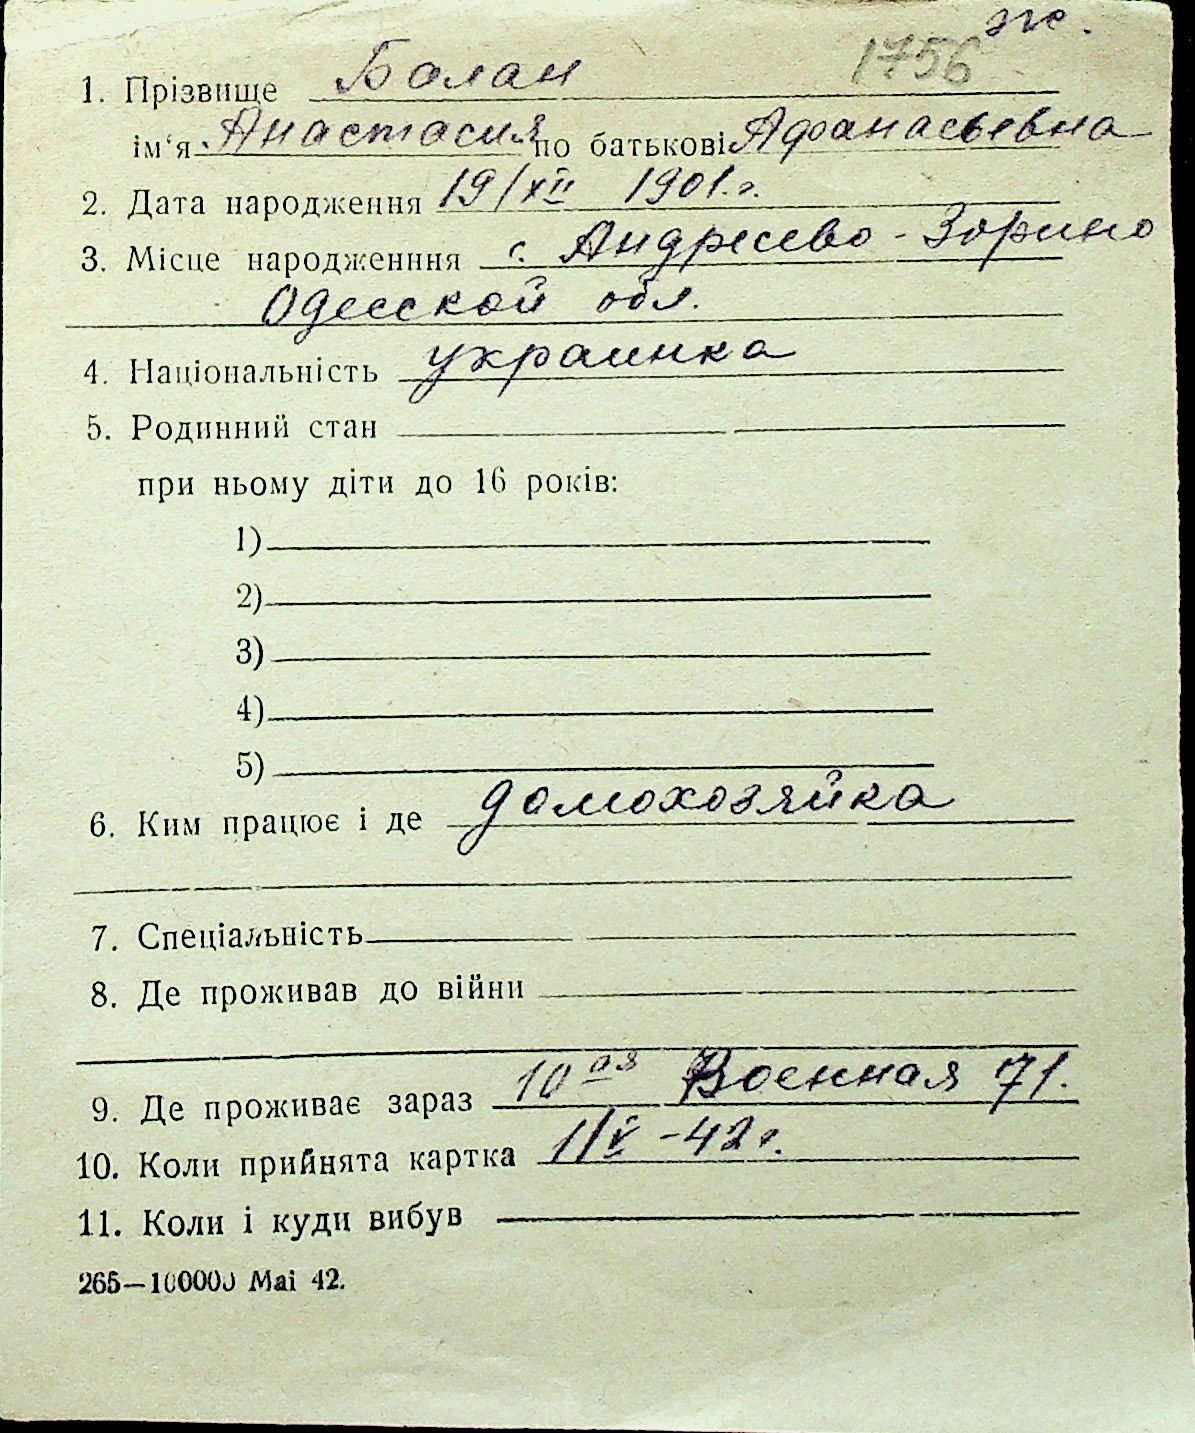 ж.
1756
1. Прізвище Балан
ім'я Анастасия по батькові Афанасьевна
2. Дата народження 19/XII 1901 г.
3. Місце народженння с. Андреево-Зорино
Одесской обл.
4. Національність украинка
5. Родинний стан
при ньому діти до 16 років:
1)
2)
3)
4)
5)
6. Ким працює і де домохозяйка
7. Спеціальність
8. Де проживав до війни
9. Де проживає зараз 10 ая Военная 71.
10. Коли прийнята картка 1/V-42 г.
11. Коли і куди вибув
265—100000 Mai 42.